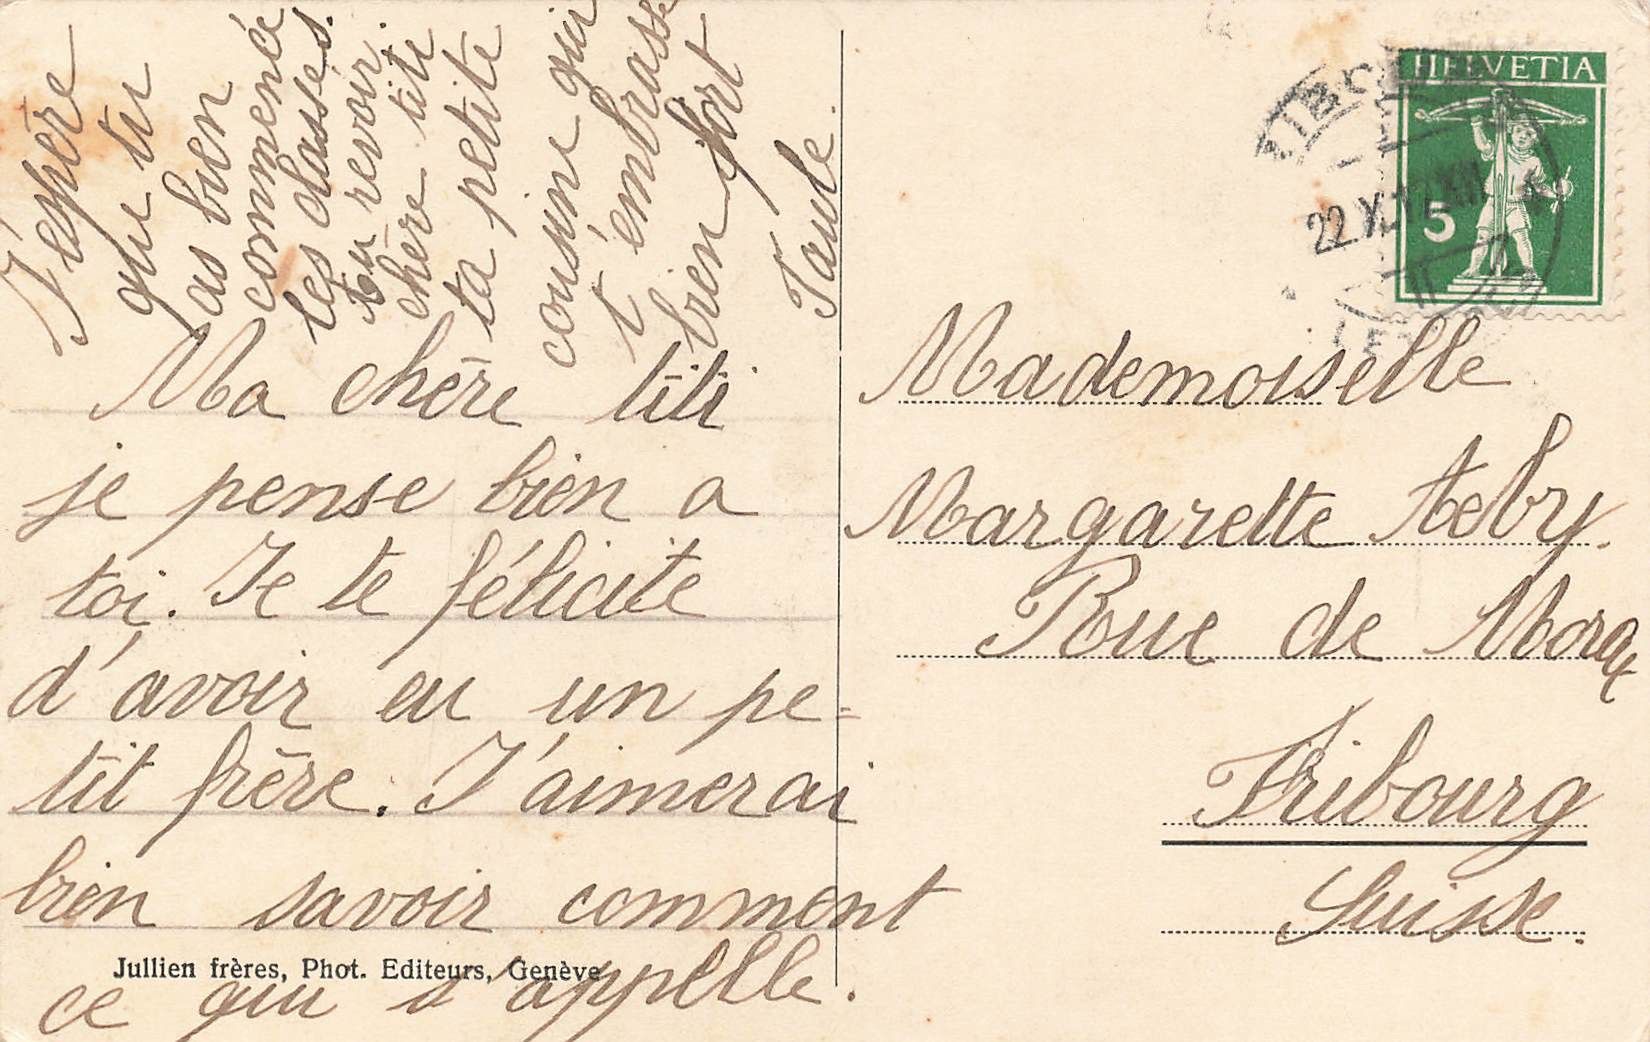 Ma chère titi
je pense bien a
toi. Je te félicite
d'avoir eu un pe-
tit frère. J'aimerai
bien savoir comment
ce qui s'appelle.
J'espère
que tu
as bien
commencé
les classes.
Au revoir.
chère titi
ta petite
cousine qui
t'embrasse
bien fort
Paule.
Jullien frères, Phot. Editeurs, Genève
HELVETIA
5
22.X
Mademoiselle
Margarette Aeby.
Rue de Morat
Fribourg
Suisse.